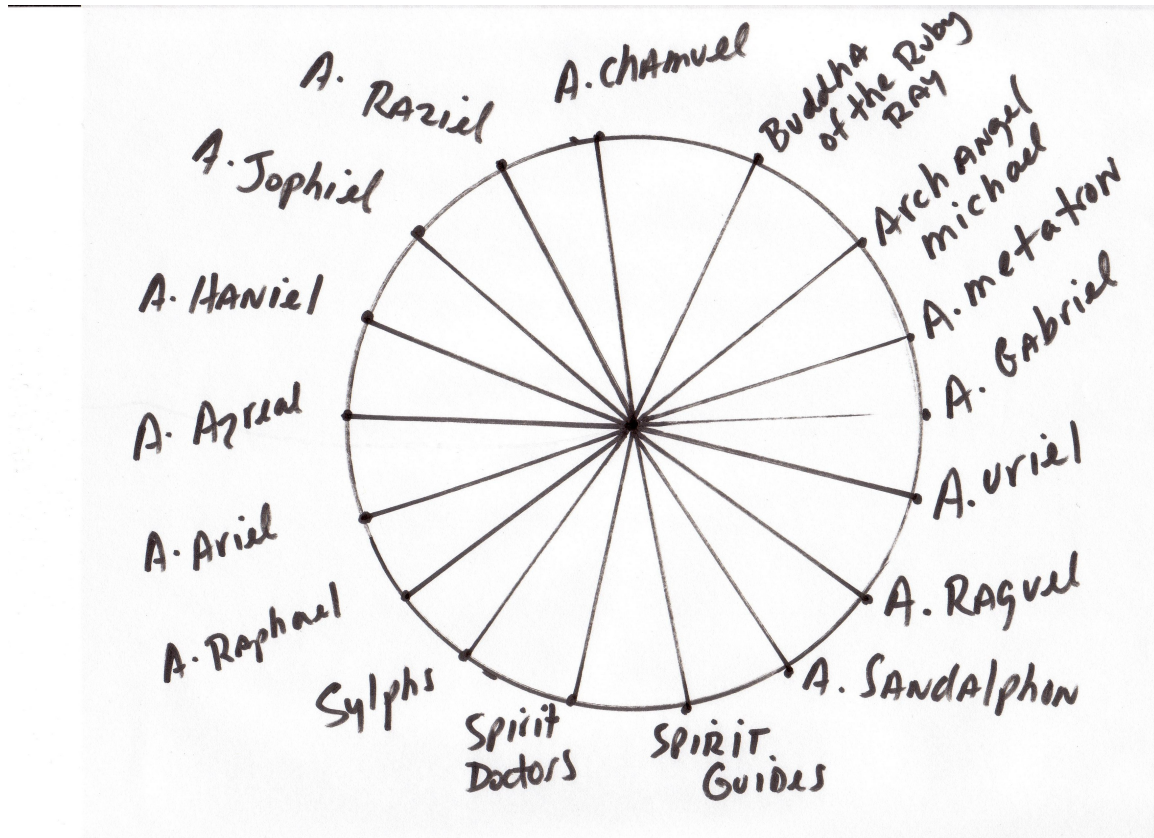 A. Chamuel
Buddha
of the Ruby
Ray
Archangel
michael
A. metatron
A. Gabriel
A. uriel
A. Raquel
A. Sandalphon
Spirit
Guides
Spirit
Doctors
Sylphs
A. Raphael
A. Ariel
A. Azreal
A. Haniel
A. Jophiel
A.
Raziel